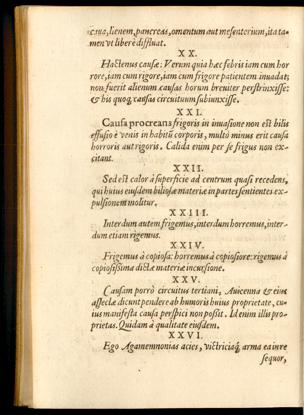 lienem, pancreas, omentum aut mesenterium, ita ta-
men vt libere diffluat.
XX.
Hactenus causæ: Verum quia hæc febris iam cum hor
rore, iam cum rigore, iam cum frigore patientem inuadat;
non fuerit alienum causas horum breuiter perstrinxisse:
& his quoq; causas circuituum subiunxisse.
XXI.
Causa procreans frigoris in inuasione non est bilis
effusio è venis in habitū corporis, multò minus erit causa
horroris aut rigoris. Calida enim per se frigus non ex-
citant.
XXII.
Sed est calor à superficie ad centrum quasi recedens,
qui huius eiusdem biliosæ materiæ in partes sentientes ex-
pulsionem molitur.
XXIII.
Interdum autem frigemus, interdum horremus, inter-
dum etiam rigemus.
XXIV.
Frigemus à copiosa: horremus à copiosiore: rigemus à
copiosissima dictæ materiæ incursione.
XXV.
Causam porrò circuitus tertiani, Auicenna & eius
assectæ dicunt pendere ab humoris huius proprietate, cu-
ius manifesta causa perspici non possit. Id enim illis pro-
prietas. Quidam à qualitate eiusdem.
XXVI.
Ego Agamemnonias acies, victriciaq; arma ea in re
sequor,